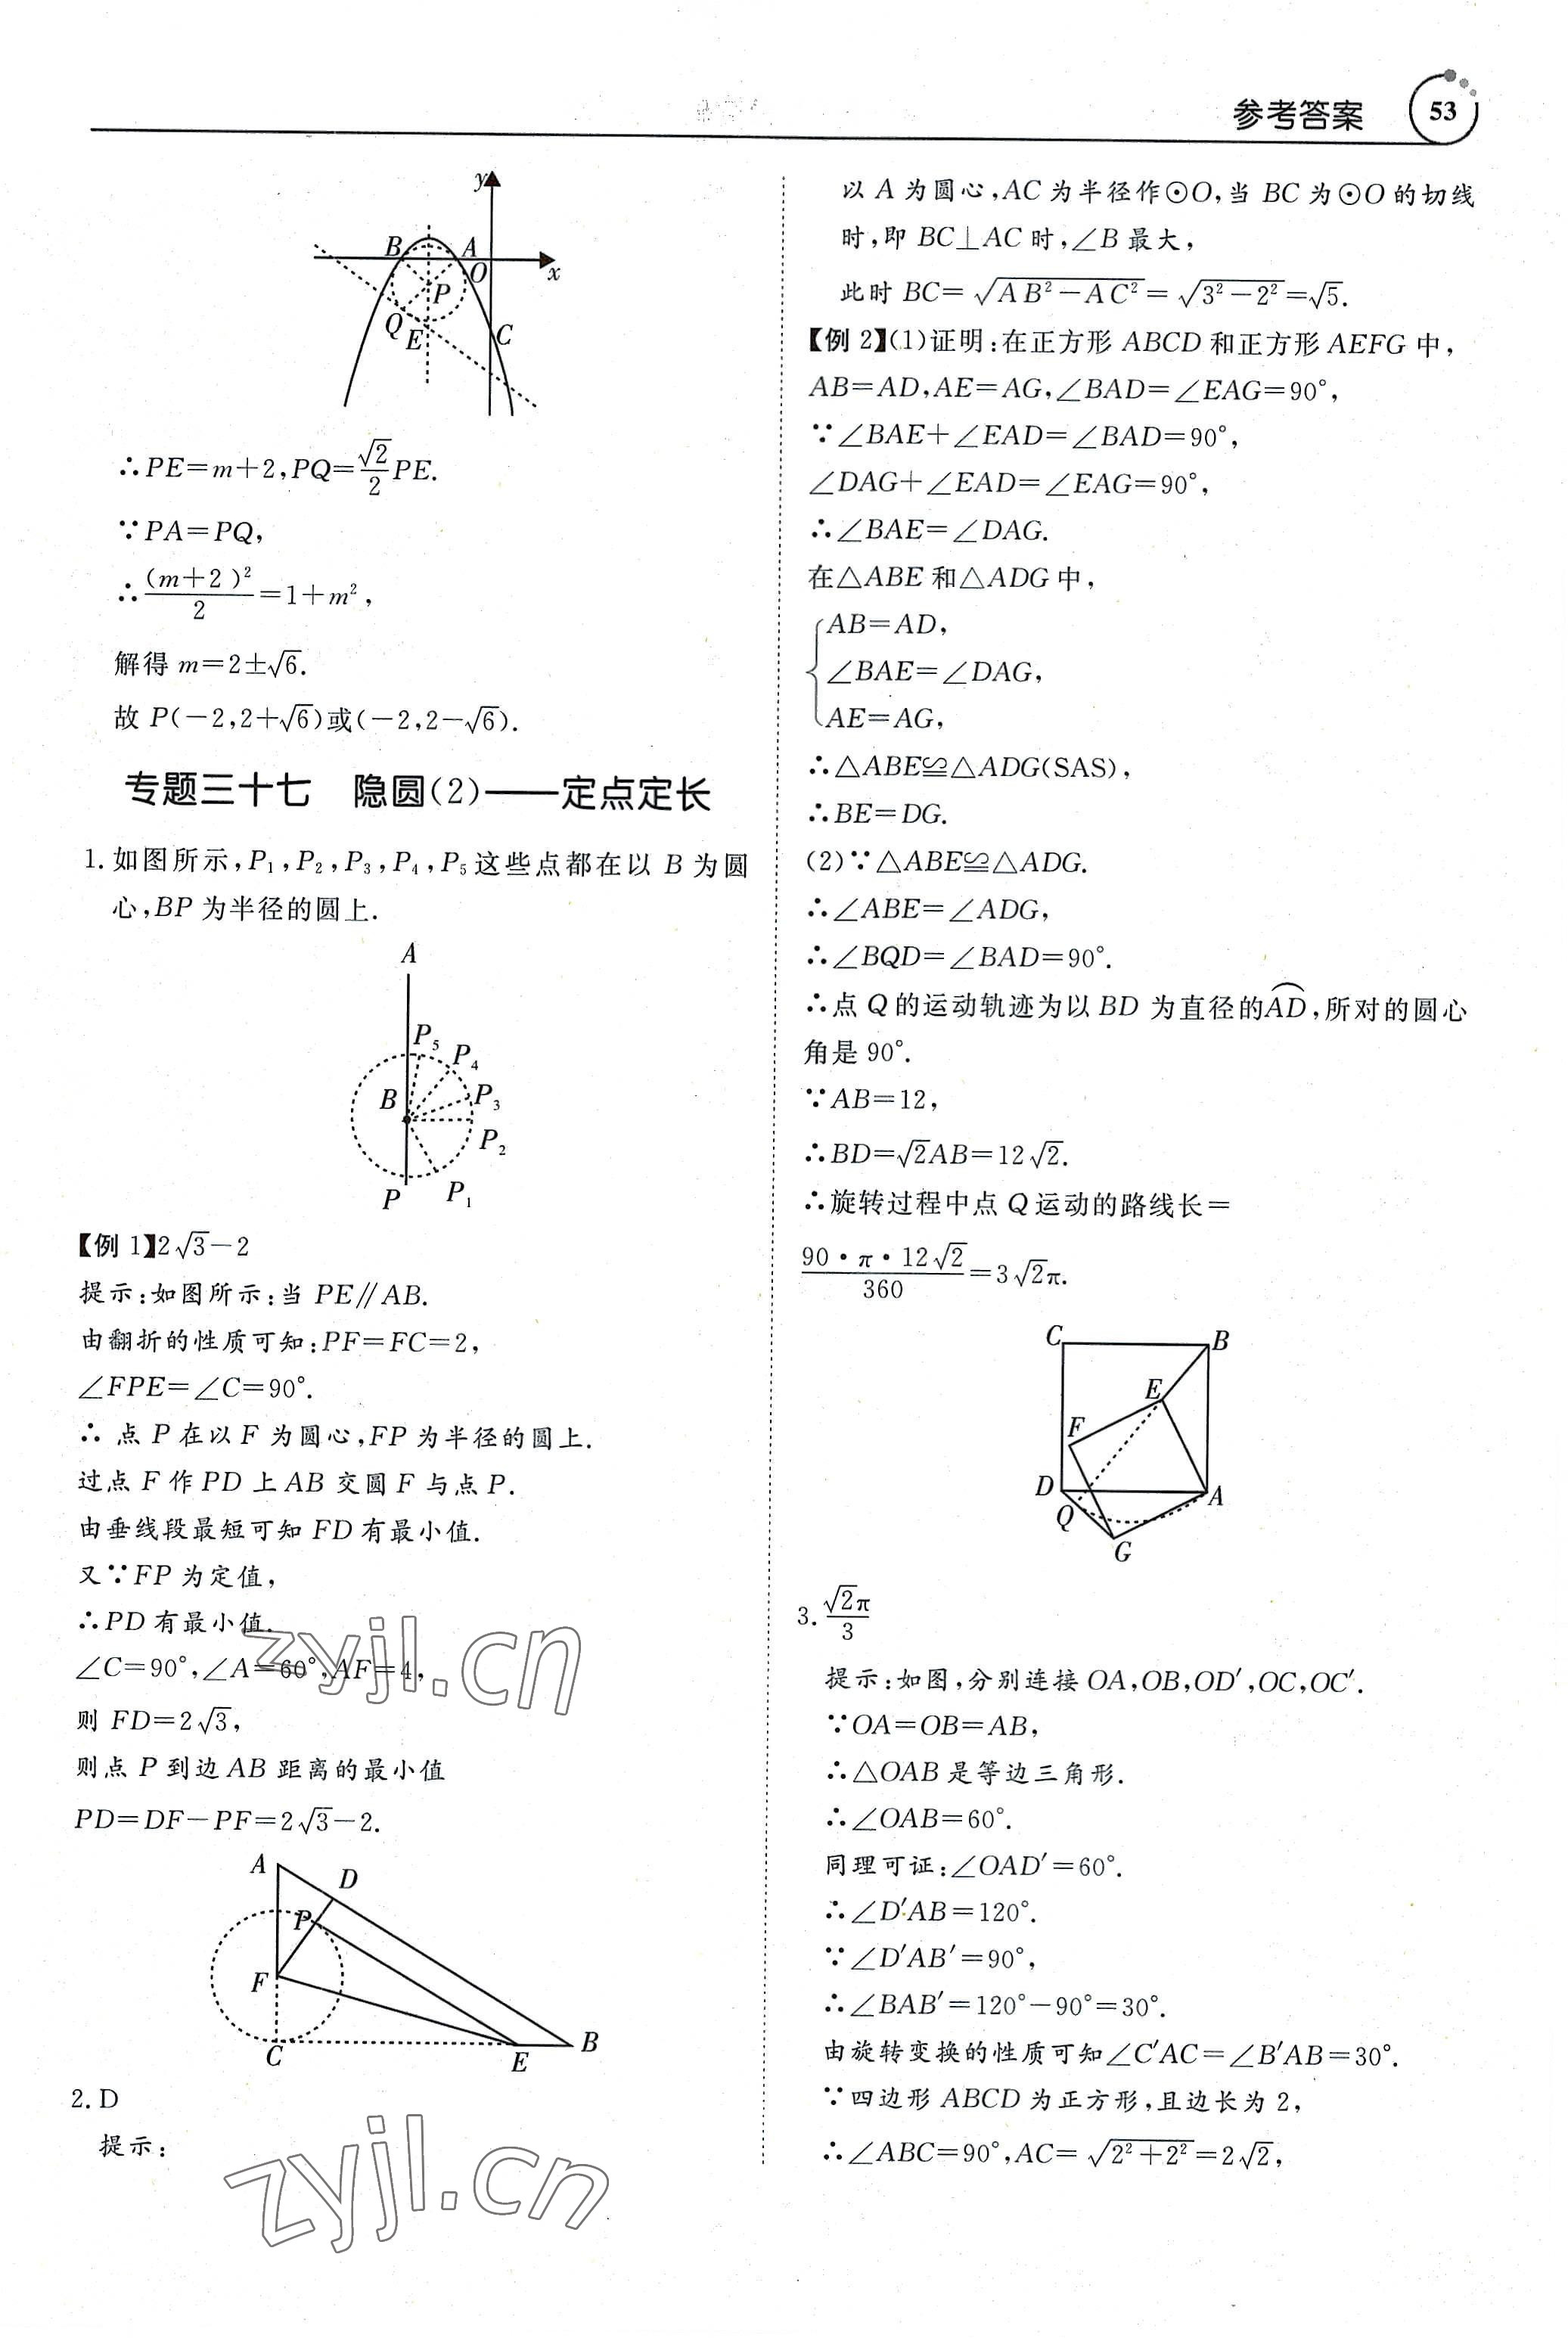 参考答案 53
y
B A
O x
P
Q E C
∴PE=m+2,PQ=√2/2 PE.
∵PA=PQ,
∴(m+2)²/2=1+m²,
解得 m=2±√6.
故 P(-2,2+√6)或(-2,2-√6).
专题三十七 隐圆(2)——定点定长
1. 如图所示,P₁,P₂,P₃,P₄,P₅这些点都在以 B 为圆
心,BP 为半径的圆上.
A
P₅ P₄
B P₃
P₂
P P₁
【例 1】2√3-2
提示:如图所示:当 PE∥AB.
由翻折的性质可知:PF=FC=2,
∠FPE=∠C=90°.
∴ 点 P 在以 F 为圆心,FP 为半径的圆上.
过点 F 作 PD 上 AB 交圆 F 与点 P.
由垂线段最短可知 FD 有最小值.
又∵FP 为定值,
∴PD 有最小值.
∠C=90°,∠A=60°,AF=4,
则 FD=2√3,
则点 P 到边 AB 距离的最小值
PD=DF-PF=2√3-2.
A D
P
F
C E B
2. D
提示:
以 A 为圆心,AC 为半径作⊙O,当 BC 为⊙O 的切线
时,即 BC⊥AC 时,∠B 最大,
此时 BC=√(AB²-AC²)=√(3²-2²)=√5.
【例 2】(1)证明:在正方形 ABCD 和正方形 AEFG 中,
AB=AD,AE=AG,∠BAD=∠EAG=90°,
∵∠BAE+∠EAD=∠BAD=90°,
∠DAG+∠EAD=∠EAG=90°,
∴∠BAE=∠DAG.
在△ABE 和△ADG 中,
AB=AD,
∠BAE=∠DAG,
AE=AG,
∴△ABE≌△ADG(SAS),
∴BE=DG.
(2)∵△ABE≌△ADG.
∴∠ABE=∠ADG,
∴∠BQD=∠BAD=90°.
∴点 Q 的运动轨迹为以 BD 为直径的⌒AD,所对的圆心
角是 90°.
∵AB=12,
∴BD=√2AB=12√2.
∴旋转过程中点 Q 运动的路线长=
90·π·12√2/360=3√2π.
C B
E
F
D A
Q
G
3. √2π/3
提示:如图,分别连接 OA,OB,OD′,OC,OC′.
∵OA=OB=AB,
∴△OAB 是等边三角形.
∴∠OAB=60°.
同理可证:∠OAD′=60°.
∴∠D′AB=120°.
∵∠D′AB′=90°,
∴∠BAB′=120°-90°=30°.
由旋转变换的性质可知∠C′AC=∠B′AB=30°.
∵四边形 ABCD 为正方形,且边长为 2,
∴∠ABC=90°,AC=√(2²+2²)=2√2,
zyjl.cn
zyjl.cn